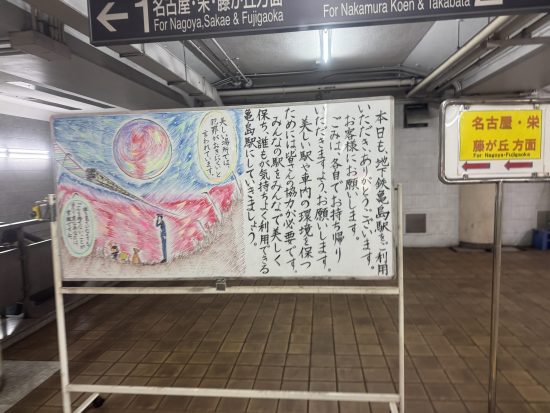 ←1 名古屋・栄・藤が丘方面
For Nagoya, Sakae & Fujigaoka
For Nakamura Koen & Takabata
2
本日も、地下鉄亀島駅をご利用
いただき、ありがとうございます。
お客様にお願いします。
ごみは、各自でお持ち帰り
いただきますようお願いします。
美しい駅や車内の環境を保つ
ためには皆さんの協力が必要です。
みんなの駅をみんなで美しく
保ち、誰もが気持ちよく利用できる
亀島駅にしていきましょう。
美しい場所では、
犯罪がおきにくいと
言われています。
名古屋・栄
藤が丘方面
For Nagoya-Fujigaoka